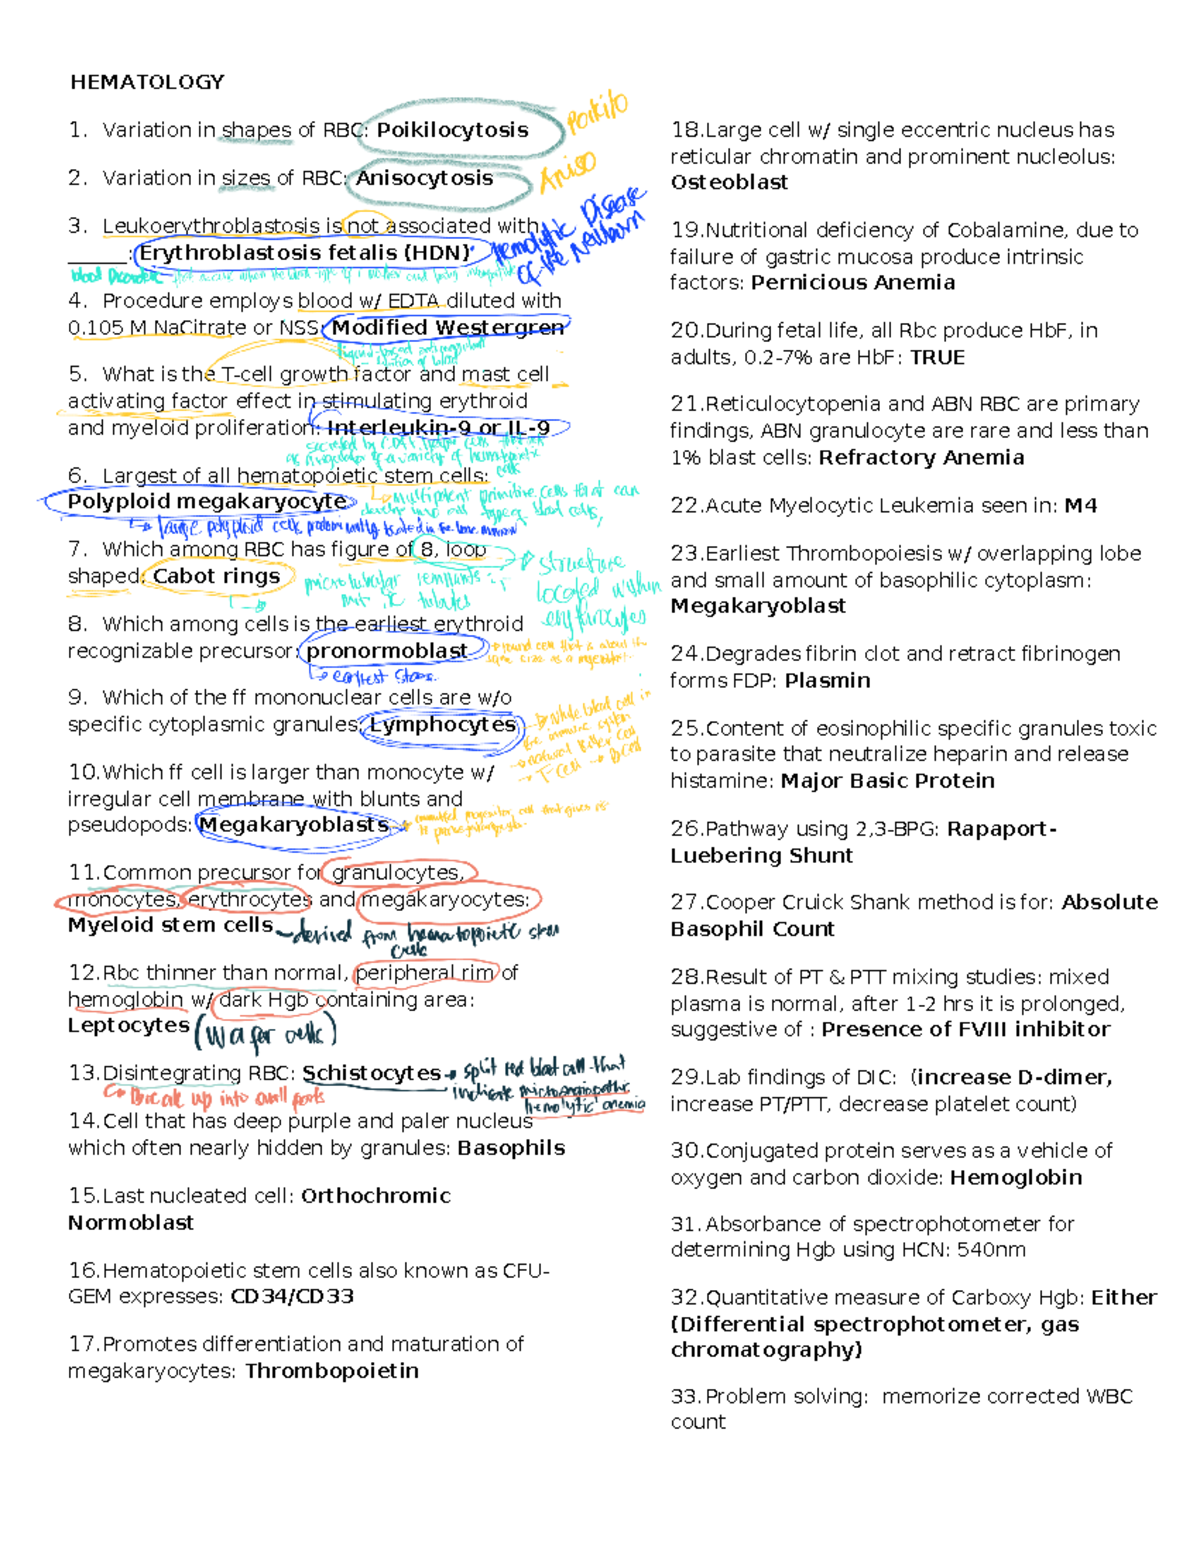 HEMATOLOGY
1. Variation in shapes of RBC: Poikilocytosis
Poikilo
2. Variation in sizes of RBC: Anisocytosis
Aniso
3. Leukoerythroblastosis is not associated with
_____: Erythroblastosis fetalis (HDN)
Hemolytic Disease
of the Newborn
blood Disorder
4. Procedure employs blood w/ EDTA diluted with
0.105 M NaCitrate or NSS: Modified Westergren
5. What is the T-cell growth factor and mast cell
activating factor effect in stimulating erythroid
and myeloid proliferation: Interleukin-9 or IL-9
secreted by
cells
6. Largest of all hematopoietic stem cells:
Polyploid megakaryocyte
multipotent primitive cells that can
develop into all types of blood cells,
large polyploid cells predominantly located in the bone marrow
7. Which among RBC has figure of 8, loop
shaped: Cabot rings
microtubular remnants
structure
located within
erythrocytes
8. Which among cells is the earliest erythroid
recognizable precursor: pronormoblast
round cell that is about the
same size as a myeloblast.
earliest stage.
9. Which of the ff mononuclear cells are w/o
specific cytoplasmic granules: Lymphocytes
white blood cell in
the immune system
natural killer cell
T cell → B cell
10.Which ff cell is larger than monocyte w/
irregular cell membrane with blunts and
pseudopods: Megakaryoblasts
committed progenitor cell that gives rise
11.Common precursor for granulocytes,
monocytes, erythrocytes and megakaryocytes:
Myeloid stem cells
derived from hematopoietic stem
cells
12.Rbc thinner than normal, peripheral rim of
hemoglobin w/ dark Hgb containing area:
Leptocytes (Wafer cells)
13.Disintegrating RBC: Schistocytes
split red blood cell that
indicate microangiopathic
hemolytic anemia
Break up into small parts
14.Cell that has deep purple and paler nucleus
which often nearly hidden by granules: Basophils
15.Last nucleated cell: Orthochromic
Normoblast
16.Hematopoietic stem cells also known as CFU-
GEM expresses: CD34/CD33
17.Promotes differentiation and maturation of
megakaryocytes: Thrombopoietin
18.Large cell w/ single eccentric nucleus has
reticular chromatin and prominent nucleolus:
Osteoblast
19.Nutritional deficiency of Cobalamine, due to
failure of gastric mucosa produce intrinsic
factors: Pernicious Anemia
20.During fetal life, all Rbc produce HbF, in
adults, 0.2-7% are HbF: TRUE
21.Reticulocytopenia and ABN RBC are primary
findings, ABN granulocyte are rare and less than
1% blast cells: Refractory Anemia
22.Acute Myelocytic Leukemia seen in: M4
23.Earliest Thrombopoiesis w/ overlapping lobe
and small amount of basophilic cytoplasm:
Megakaryoblast
24.Degrades fibrin clot and retract fibrinogen
forms FDP: Plasmin
25.Content of eosinophilic specific granules toxic
to parasite that neutralize heparin and release
histamine: Major Basic Protein
26.Pathway using 2,3-BPG: Rapaport-
Luebering Shunt
27.Cooper Cruick Shank method is for: Absolute
Basophil Count
28.Result of PT & PTT mixing studies: mixed
plasma is normal, after 1-2 hrs it is prolonged,
suggestive of : Presence of FVIII inhibitor
29.Lab findings of DIC: (increase D-dimer,
increase PT/PTT, decrease platelet count)
30.Conjugated protein serves as a vehicle of
oxygen and carbon dioxide: Hemoglobin
31.Absorbance of spectrophotometer for
determining Hgb using HCN: 540nm
32.Quantitative measure of Carboxy Hgb: Either
(Differential spectrophotometer, gas
chromatography)
33.Problem solving: memorize corrected WBC
count